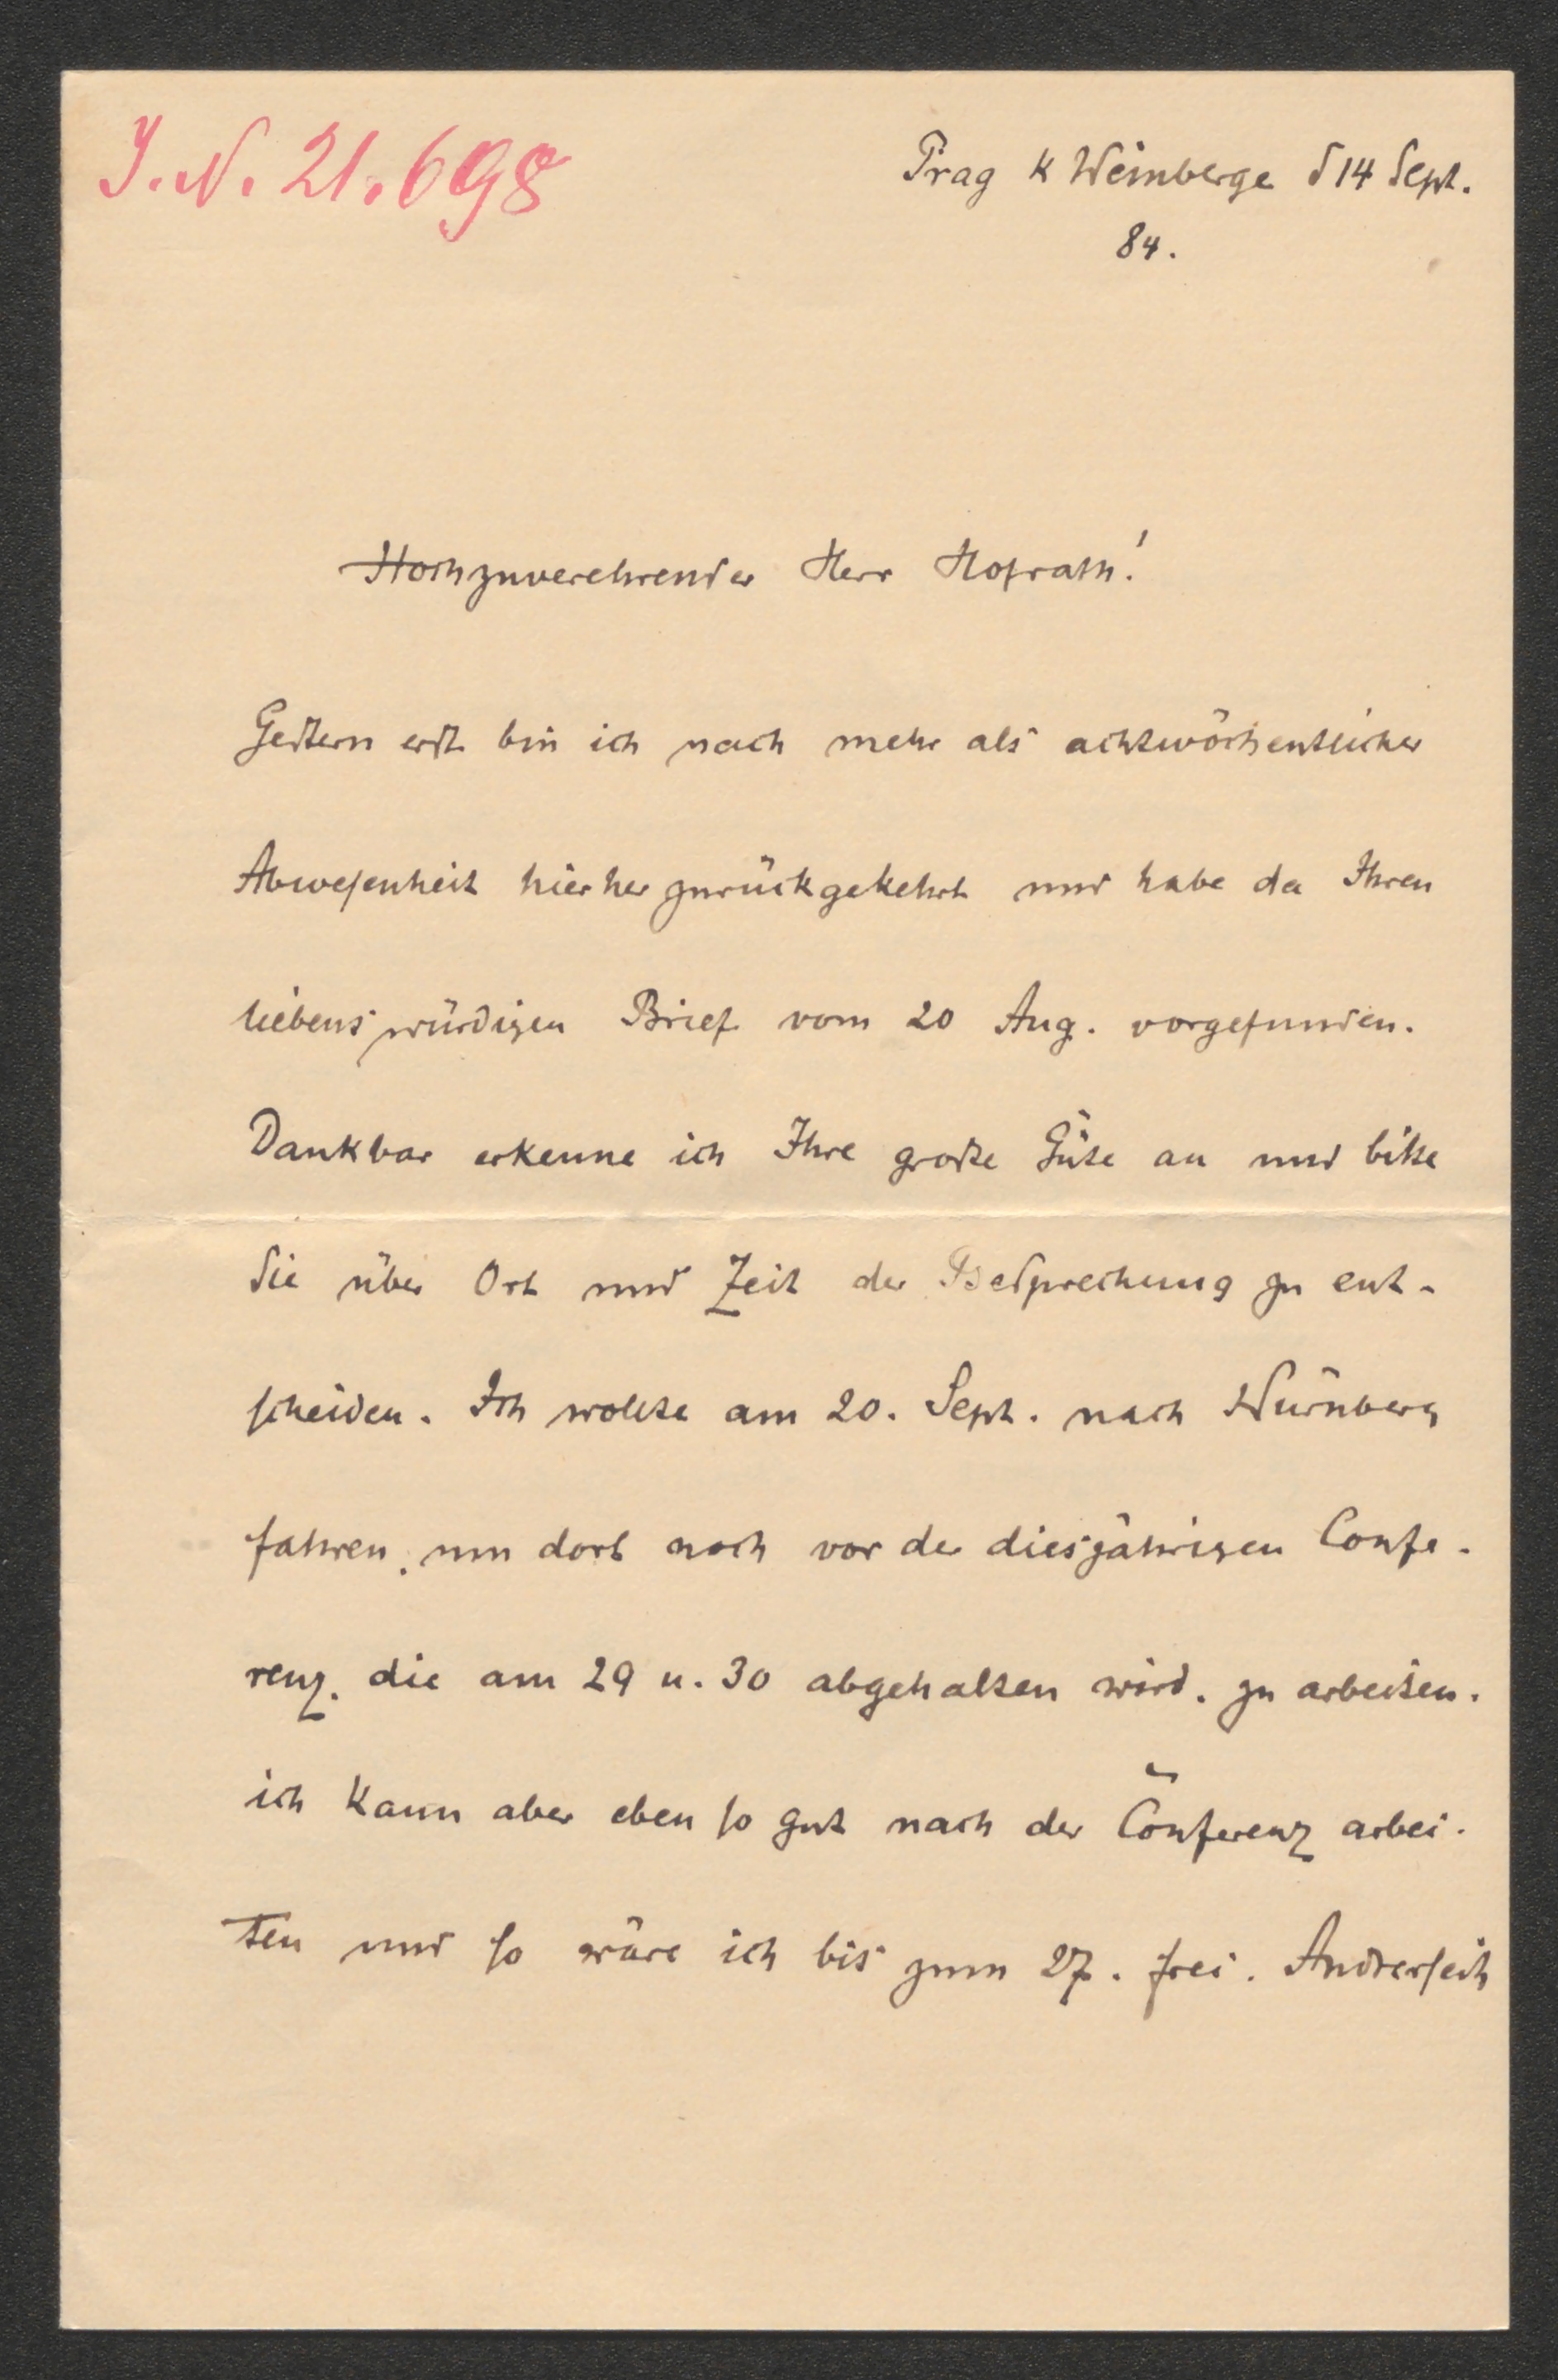 J. N. 21.698
Prag K Weinberge d 14 Sept.
84.
Hochzuverehrender Herr Hofrath!
Gestern erst bin ich nach mehr als achtwöchentlicher
Abwesenheit hierher zurückgekehrt und habe da Ihren
liebenswürdigen Brief vom 20 Aug. vorgefunden.
Dankbar erkenne ich Ihre große Güte an und bitte
Sie über Ort und Zeit der Besprechung zu ent-
scheiden. Ich wollte am 20. Sept. nach Nürnberg
fahren, um dort noch vor der diesjährigen Confe-
renz, die am 29 u. 30 abgehalten wird, zu arbeiten.
ich kann aber eben so gut nach der Conferenz arbei-
ten und so wäre ich bis zum 27. frei. Andrerseits